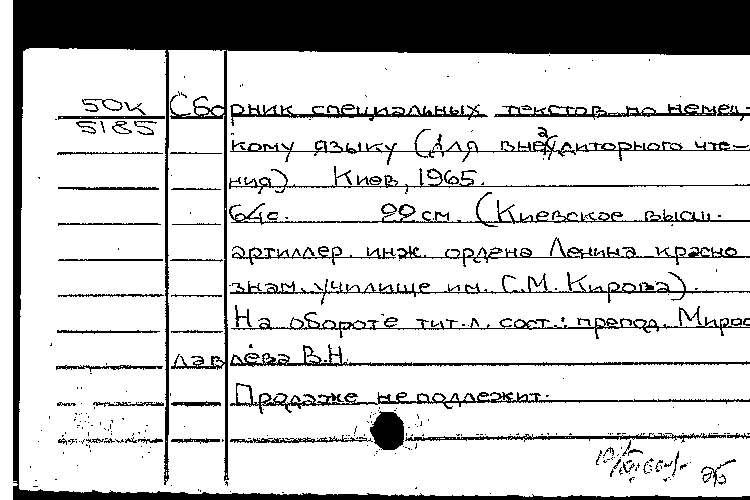 50к
5185
Сборник специальных текстов по немец-
кому языку (для внеаудиторного чте-
ния) Киев, 1965.
64с. 22 см. (Киевское высш.
артиллер. инж. ордена Ленина красно
знам. училище им. С.М. Кирова).
На обороте тит.л. сост.: препод. Мирос
лавлева В.Н.
Продаже не подлежит.